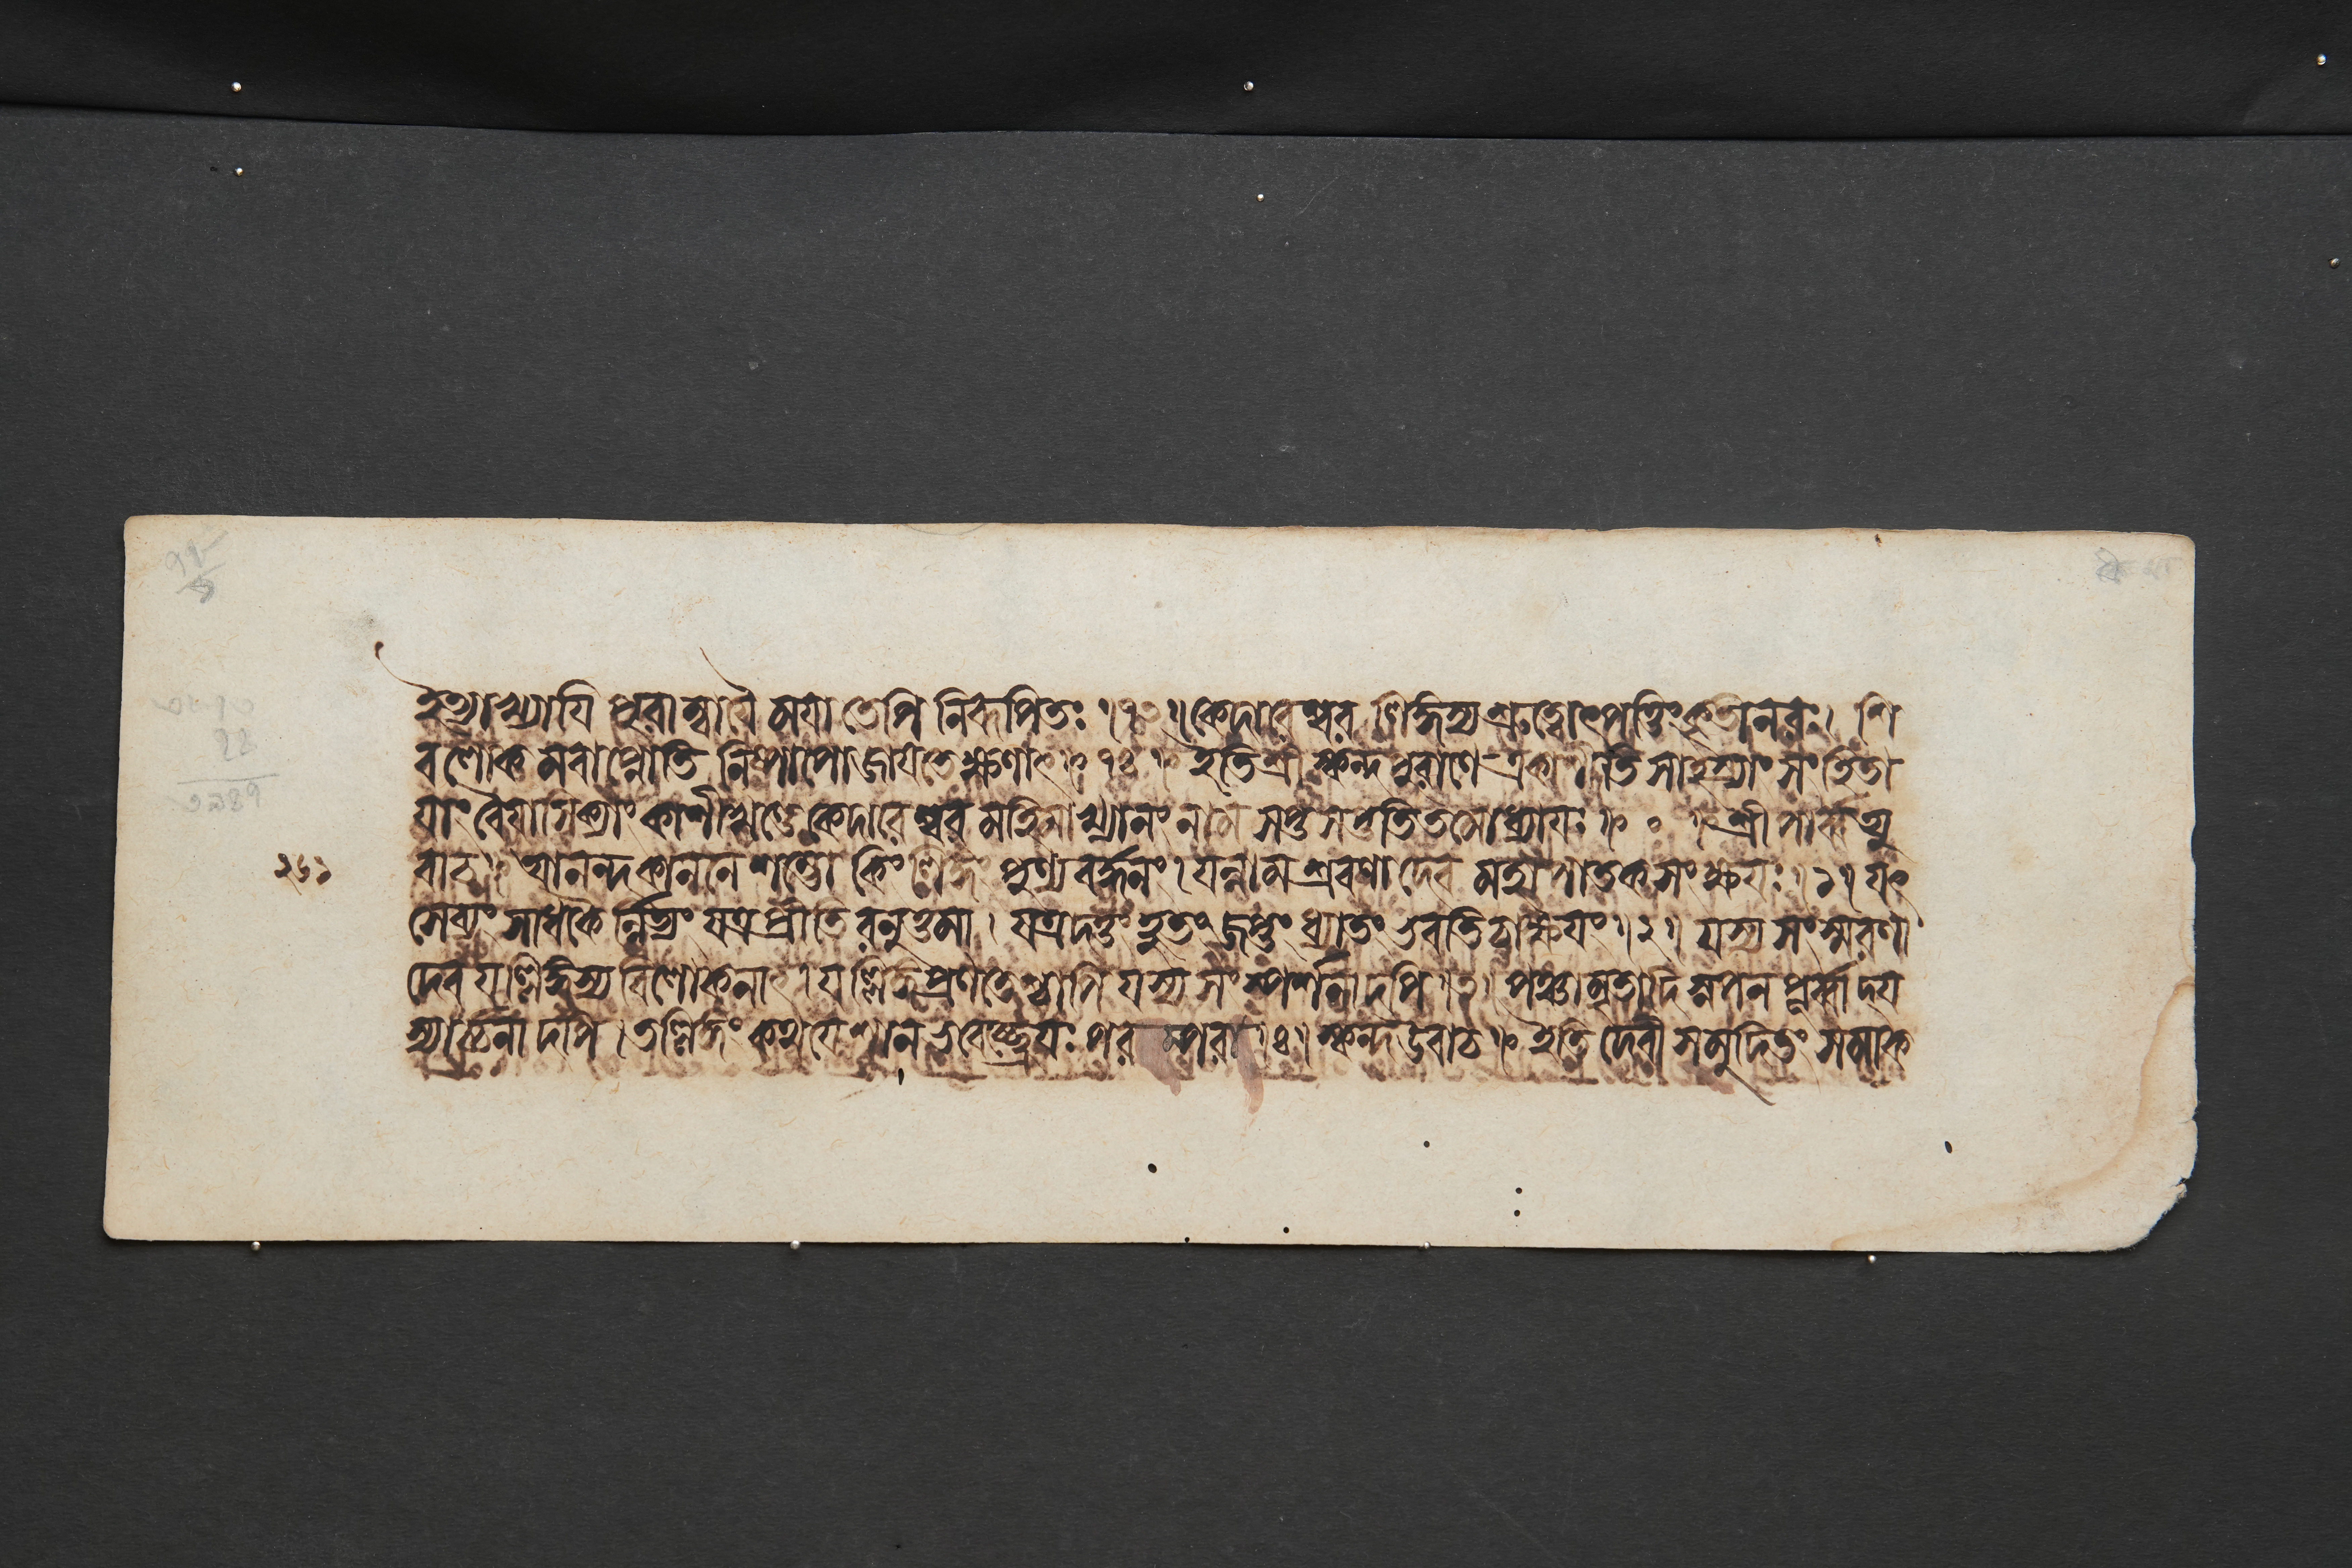 ইত্যাখ্যায়ি পুরাম্বায়ৈ ময়া তেপি নিরূপিতঃ ।৭৩॥ কেদারেশ্বর লিঙ্গস্য শ্রুত্বোৎপত্তিং কৃতী নরঃ। শি
বলোক মবাপ্নোতি নিষ্পাপো জায়তে ক্ষণাৎ ॥ ৭৪ ॥ ইতি শ্রীস্কন্দপুরাণে একাশীতি সাহস্র্যাং সংহিতা
য়াং বৈয়াসক্যাং কাশীখণ্ডে কেদারেশ্বর মহিমাখ্যানং নাম সপ্তসপ্ততিতমোধ্যায়ঃ ॥ ० ॥ শ্রীপার্ব্বত্যু
২৬১ বাচ ॥ আনন্দকাননে শম্ভো কিং লিঙ্গং পুণ্যবর্দ্ধনং। যন্নাম শ্রবণাদেব মহাপাতক সংক্ষয়ঃ ॥১॥ যৎ
সেব্যং সাধকৈর্ন্নিত্যং যত্র প্রীতিরনুত্তমা । যত্র দত্তং হুতং জপ্তং ধ্যাতং ভবতি চাক্ষয়ং ॥২॥ যস্য সংস্মরণা
দেব যল্লিঙ্গস্য বিলোকনাৎ। যল্লিঙ্গপ্রণতেশ্চাপি যস্য সংস্পর্শনাদপি ।৩। পঞ্চামৃতাদি স্নপন পূর্ব্বাদ্য
স্যার্চনাদপি । তল্লিঙ্গং কথয়েশান ভবেচ্ছ্রেয়ঃ পরম্পরা ॥৪॥ স্কন্দ উবাচ ॥ ইতি দেবী সমুদিতং সমাক